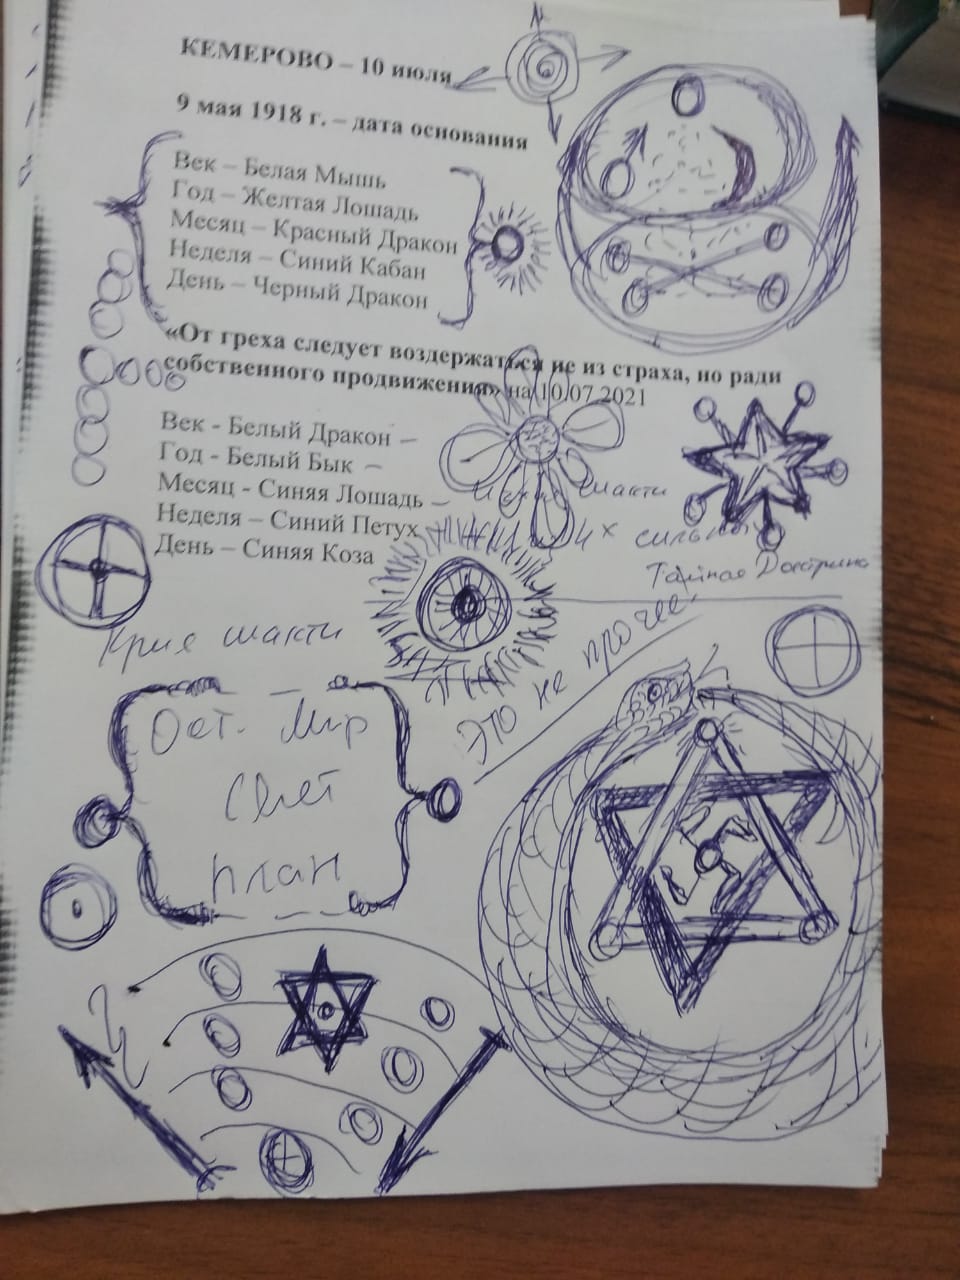 КЕМЕРОВО – 10 июля
9 мая 1918 г. – дата основания
Век – Белая Мышь
Год – Желтая Лошадь
Месяц – Красный Дракон
Неделя – Синий Кабан
День – Черный Дракон
«От греха следует воздержаться не из страха, но ради
собственного продвижения» на 10.07.2021
Век - Белый Дракон –
Год - Белый Бык –
Месяц - Синяя Лошадь –
Неделя – Синий Петух
День – Синяя Коза
шакти
их сильны
Тайная Доктрина
Крия шакти
Это не прочее
Ост. Мир
Свет
план